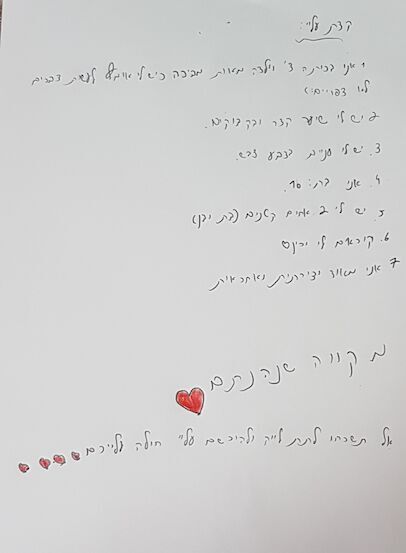 קצת עליי:
1 אני בכיתה ד' וילדה מאוד מגיבה כיש לי אומץ לעשת דברים
לא צפויים:)
2 יש לי שיער קצר ובקבוקים.
3. יש לי עניים בצבע דבש.
4. אני בת: 10.
5. יש לי 2 אחים קטנים (בת ובן)
6. קוראים לי
7 אני מאוד יצירתית ואחראית
מקווה שנהנתם
אל תשכחו לתת לייק ולהירשם עליי חולה עלייכם